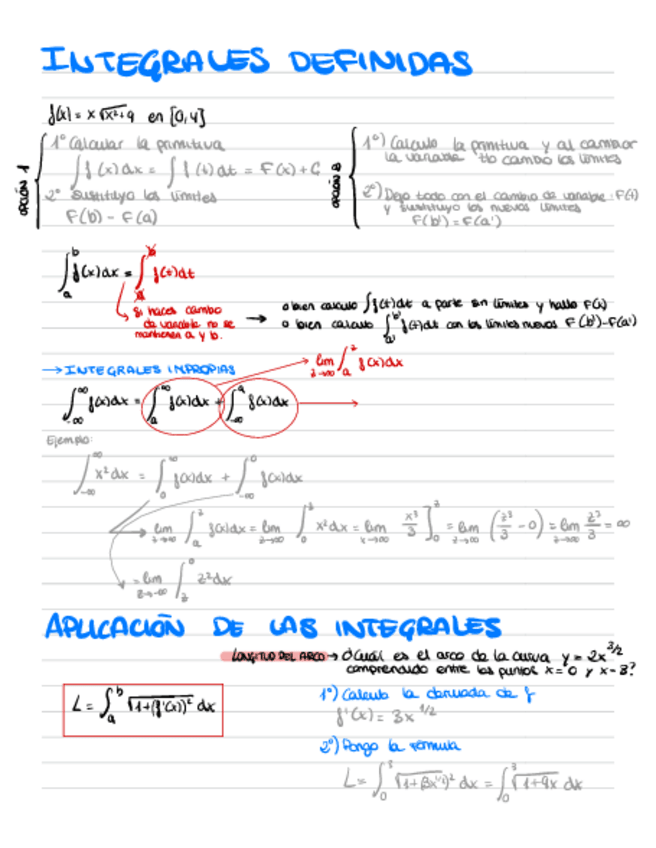 INTEGRALES DEFINIDAS
f(x) = x √x²+9 en [0,4]
OPCIÓN 1
1º Calcular la primitiva
∫f(x)dx = ∫f(t)dt = F(x)+C
2º Sustituyo los límites
F(b) - F(a)
OPCIÓN B
1º) Calculo la primitiva y al cambiar
la variable no cambio los límites
2º) Dejo todo con el cambio de variable: F(t)
y sustituyo los nuevos límites
F(b') = F(a')
∫ₐᵇ f(x)dx = ∫ₐᵇ f(t)dt
Si haces cambio
de variable no se
mantienen a y b.
→ o bien calculo ∫f(t)dt a parte sin límites y hallo F(x)
o bien calculo ∫ₐ'ᵇ' f(t)dt con los límites nuevos F(b')-F(a')
→ INTEGRALES IMPROPIAS
lim z→∞ ∫ₐᶻ f(x)dx
∫₋∞^∞ f(x)dx = ∫ₐ^∞ f(x)dx + ∫₋∞^a f(x)dx →
Ejemplo:
∫₋∞^∞ x²dx = ∫₀^∞ f(x)dx + ∫₋∞^0 f(x)dx
→ lim z→∞ ∫ₐᶻ f(x)dx = lim z→∞ ∫₀ᶻ x²dx = lim x→∞ x³/3 ]₀ᶻ = lim z→∞ (z³/3 - 0) = lim z→∞ z³/3 = ∞
= lim z→-∞ ∫_z^0 z²dx
APLICACIÓN DE LAS INTEGRALES
LONGITUD DEL ARCO → ¿Cuál es el arco de la curva y = 2x^3/2
comprendido entre los puntos x=0 y x=3?
L = ∫ₐᵇ √1+(f'(x))² dx
1º) Calculo la derivada de f
f'(x) = 3x^1/2
2º) Pongo la fórmula
L = ∫₀³ √1+(3x^1/2)² dx = ∫₀³ √1+9x dx